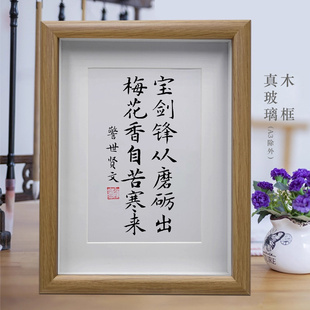 宝剑锋从磨砺出
梅花香自苦寒来
警世贤文
木框
真玻璃
(A3除外)